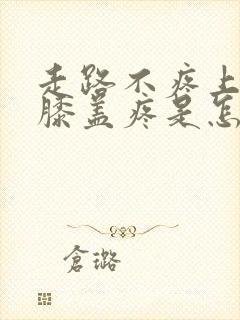 走路不疼上
膝盖疼是怎
倉璐